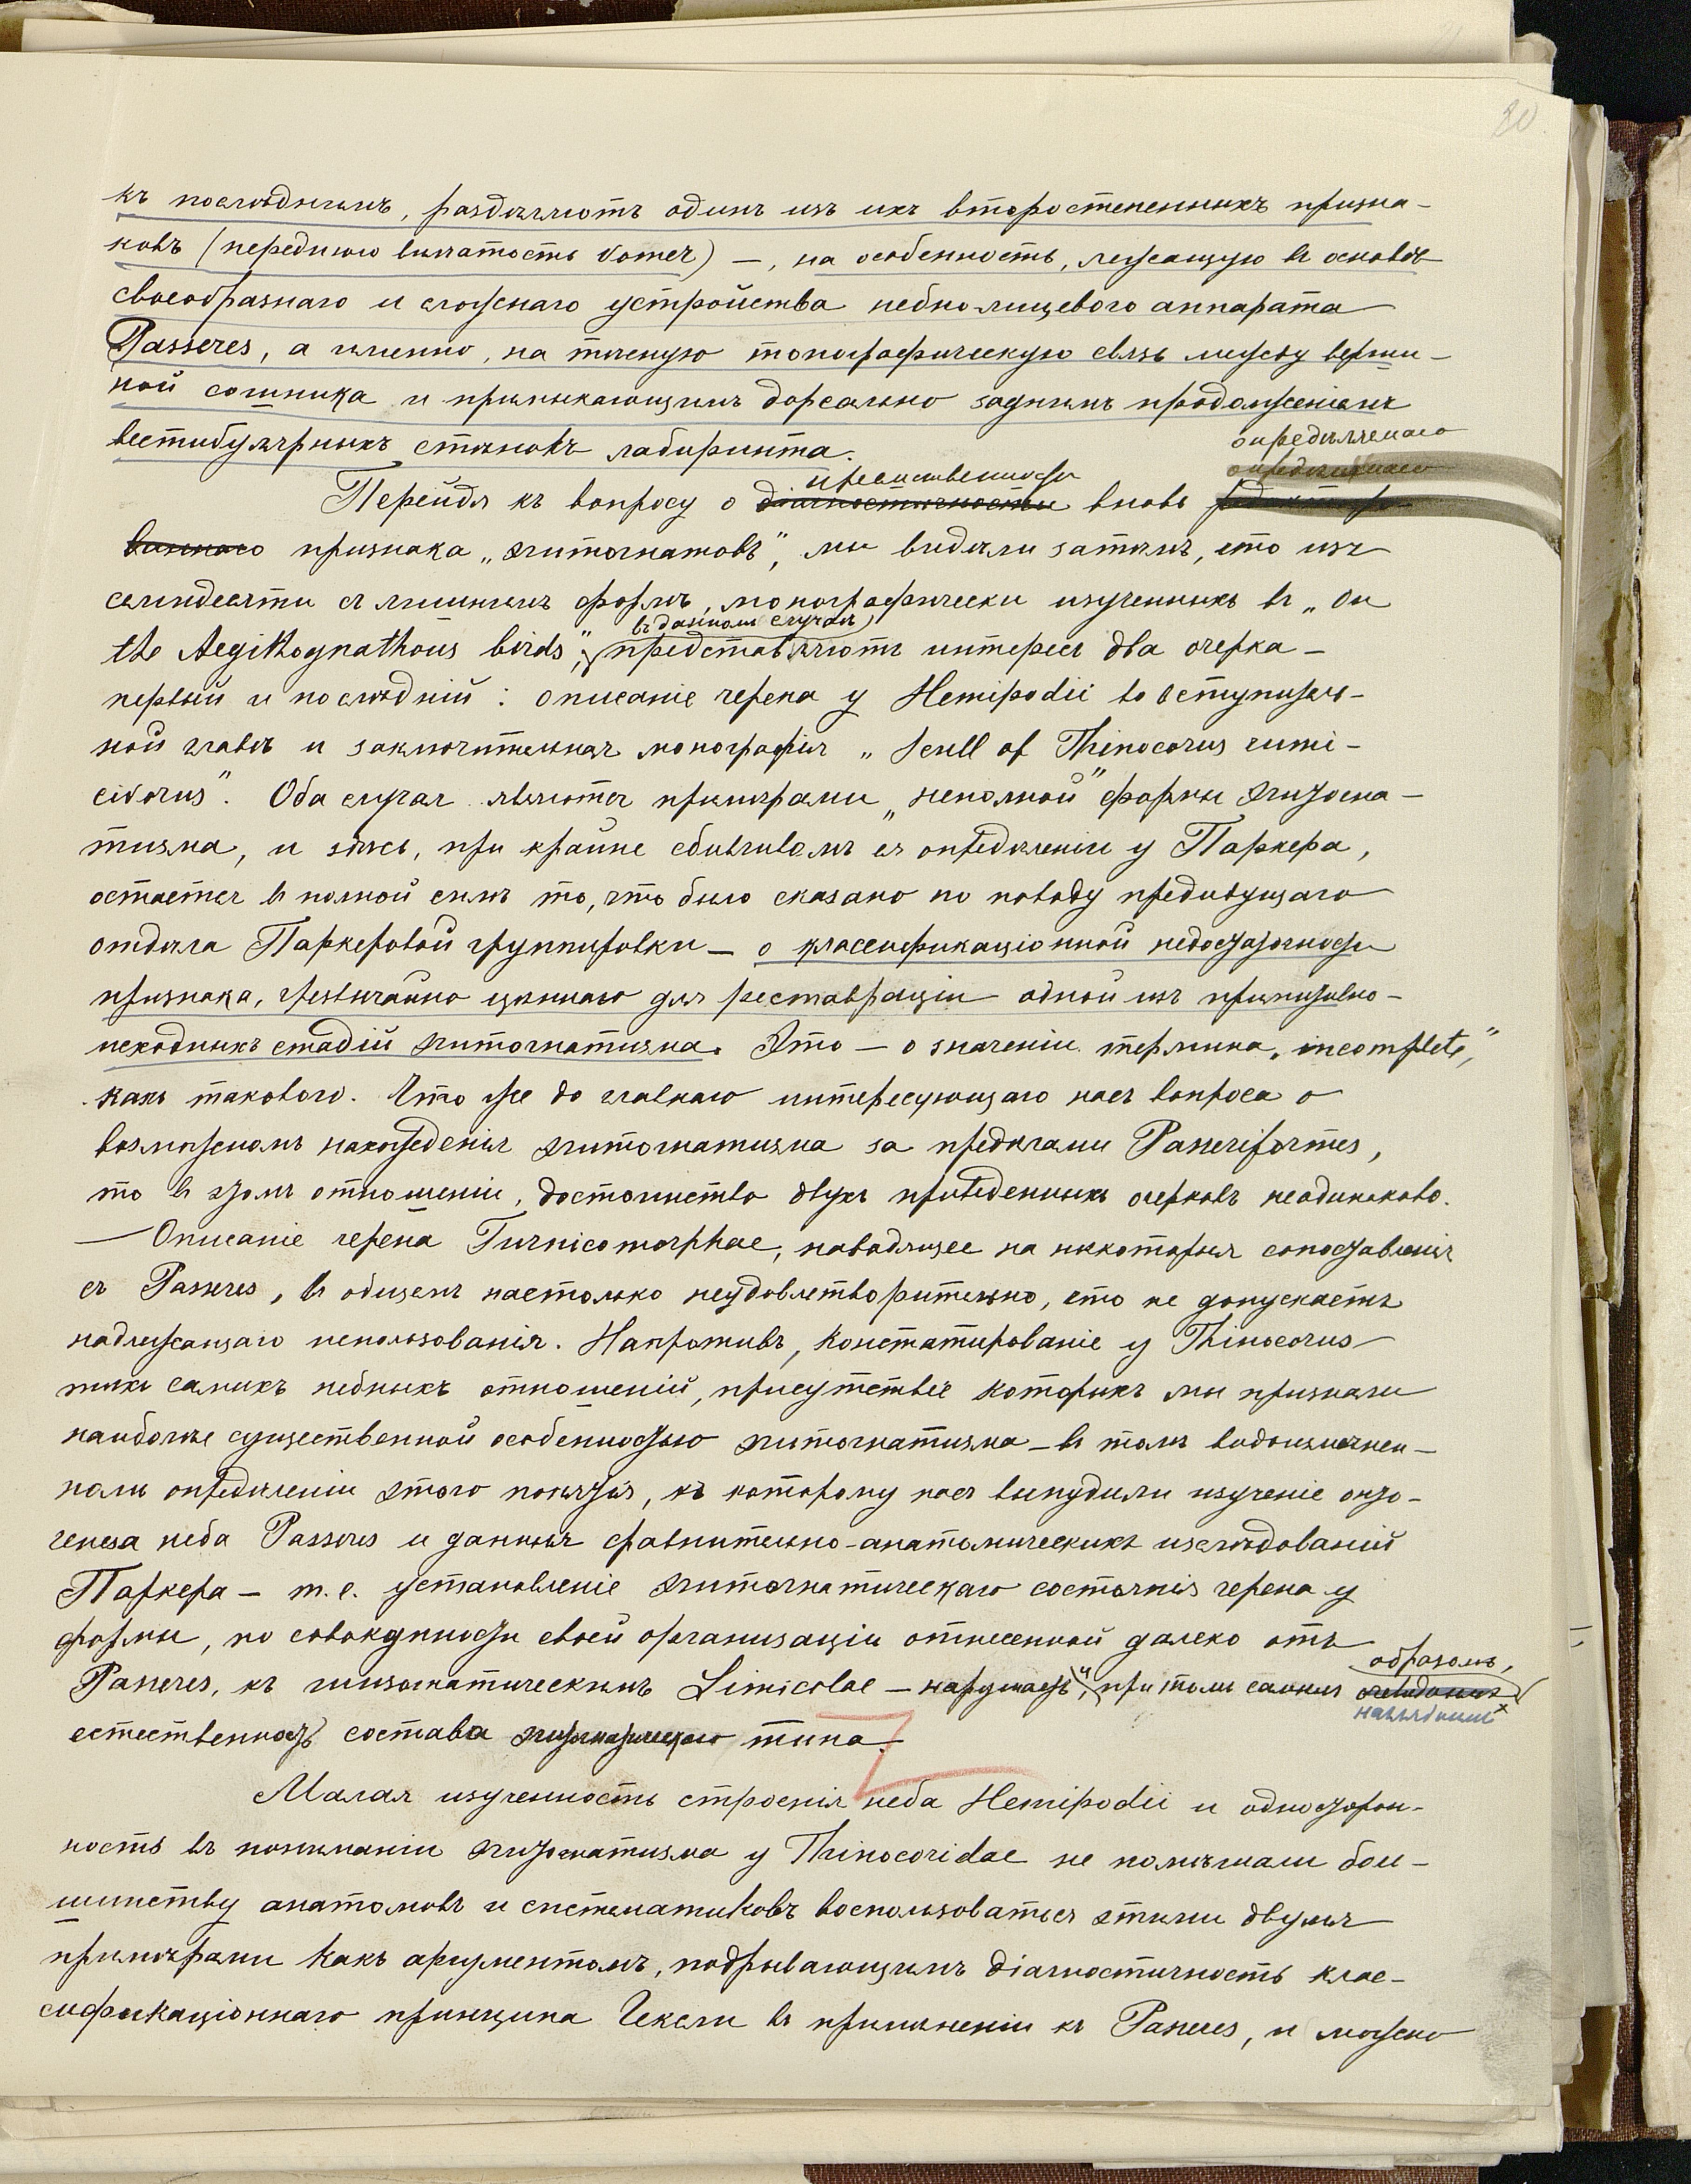 20.
къ послѣднимъ, раздѣляютъ одинъ изъ ихъ второстепенныхъ призна-
ковъ (переднюю выемчатость vomer) —, на особенность, лежащую въ основѣ
своеобразнаго и сложнаго устройства небно-лицевого аппарата
Passeres, а именно, на тѣсную топографическую связь между верши-
ной сошника и примыкающимъ дорсально заднимъ продолженіемъ
вестибулярныхъ стѣнокъ лабиринта.
опредѣляемаго
преимственности
Перейдя къ вопросу о діагностичности вновь редактиро-
ваннаго признака „эгитогнатовъ", мы видѣли затѣмъ, что изъ
семидесяти съ лишнимъ формъ, монографически изученныхъ въ „On
въ данномъ случаѣ
the Aegithognathous birds", представляютъ интересъ два очерка —
первый и послѣдній: описаніе черепа у Hemipodii во вступитель-
ной главѣ и заключительная монографія „Scull of Thinocorus rumi-
civorus". Оба случая являются примѣрами „неполной" формы эгитогна-
тизма, и здѣсь, при крайне сбивчивомъ ея опредѣленіи у Паркера,
остается въ полной силѣ то, что было сказано по поводу предыдущаго
отдѣла Паркеровой группировки — о классификаціонной недостаточности
признака, чрезвычайно цѣннаго для реставраціи одной изъ примитивно-
исходныхъ стадій эгитогнатизма. Это — о значеніи термина „incomplete",
какъ такового. Что же до главнаго интересующаго насъ вопроса о
возможномъ нахожденіи эгитогнатизма за предѣлами Passeriformes,
то въ этомъ отношеніи, достоинство двухъ приведенныхъ очерковъ неодинаково.
— Описаніе черепа Turnicomorphae, наводящее на нѣкоторыя сопоставленія
съ Passeres, въ общемъ настолько неудовлетворительно, что не допускаетъ
надлежащаго использованія. Напротивъ, констатированіе у Thinocorus
тѣхъ самыхъ небныхъ отношеній, присутствіе которыхъ мы признали
наиболѣе существенной особенностью эгитогнатизма — въ томъ видоизмѣнен-
номъ опредѣленіи этого понятія, къ которому насъ вынудили изученіе онто-
генеза неба Passeres и данныя сравнительно-анатомическихъ изслѣдованій
Паркера — т. е. установленіе эгитогнатическаго состоянія черепа у
формы, по совокупности своей организаціи отнесенной далеко отъ
образомъ,
Passeres, къ шизогнатическимъ Limicolae — нарушаетъ, и при томъ самымъ очевиднымъ
нагляднымъ
естественность состава эгитогнатическаго типа.
Малая изученность строенія неба Hemipodii и односторон-
ность въ пониманіи эгитогнатизма у Thinocoridae не помѣшали боль-
шинству анатомовъ и систематиковъ воспользоваться этими двумя
примѣрами какъ аргументомъ, подрывающимъ діагностичность клас-
сификаціоннаго принципа Гексли въ примѣненіи къ Passeres, и можно